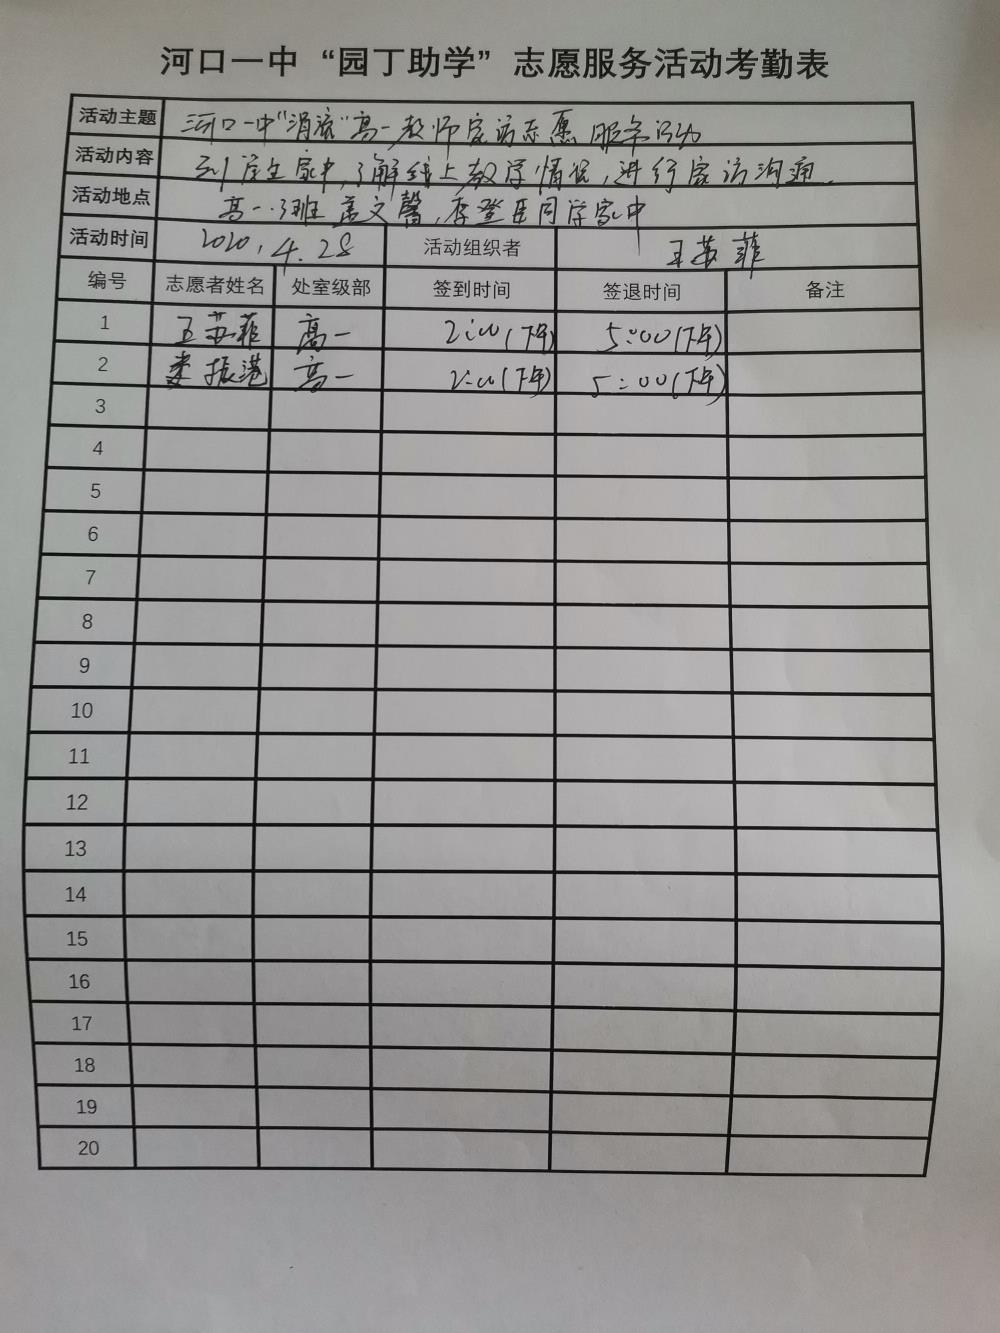 河口一中“园丁助学”志愿服务活动考勤表
活动主题 河口一中“涓流”高一教师家访志愿服务活动
活动内容 到学生家中，了解线上教学情况，进行家访沟通。
活动地点 高一.3班 盖文馨，李登臣同学家中
活动时间 2020.4.28 活动组织者 王苏菲
编号 志愿者姓名 处室级部 签到时间 签退时间 备注
1 王苏菲 高一 2:00(下午) 5:00(下午)
2 振港 高一 2:00(下午) 5:00(下午)
3
4
5
6
7
8
9
10
11
12
13
14
15
16
17
18
19
20